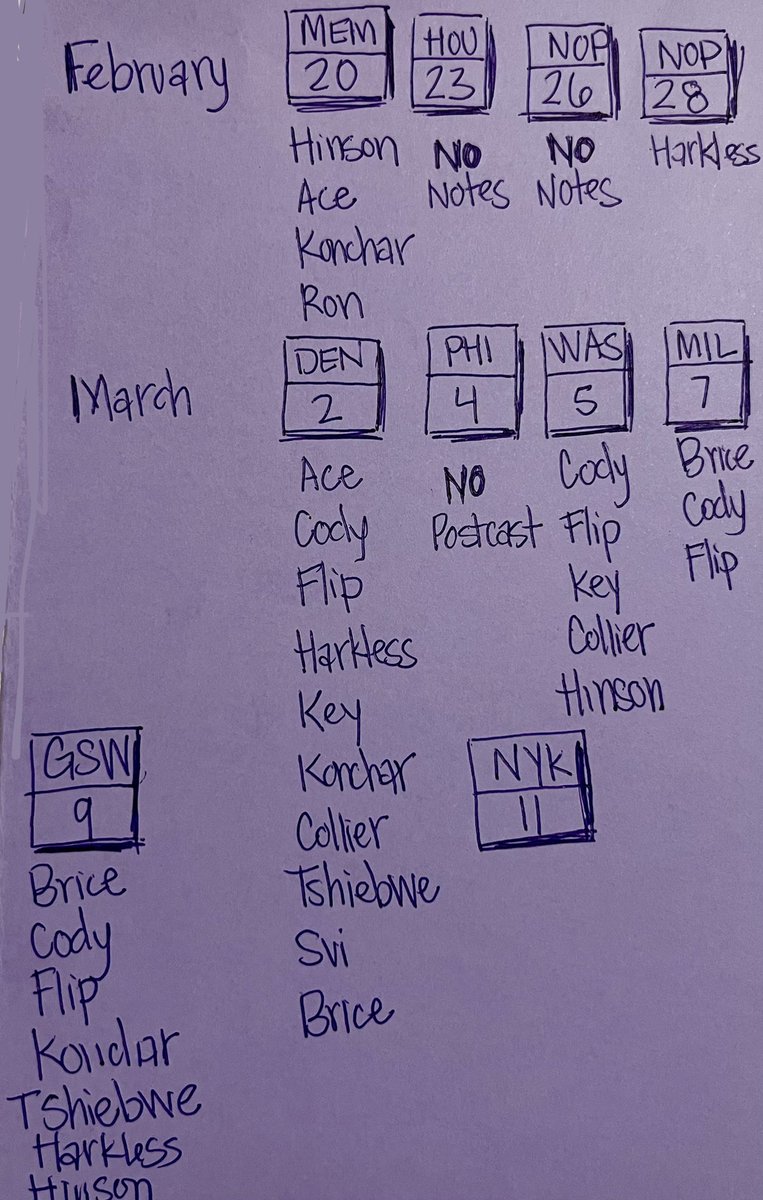 February
MEM
20
Hinson
Ace
Konchar
Ron
HOU
23
NO
Notes
NOP
26
NO
Notes
NOP
28
Harkless
March
DEN
2
Ace
Cody
Flip
Harkless
Key
Konchar
Collier
Tshiebwe
Svi
Brice
PHI
4
NO
Postcast
WAS
5
Cody
Flip
Key
Collier
Hinson
MIL
7
Brice
Cody
Flip
GSW
9
Brice
Cody
Flip
Konchar
Tshiebwe
Harkless
Hinson
NYK
11